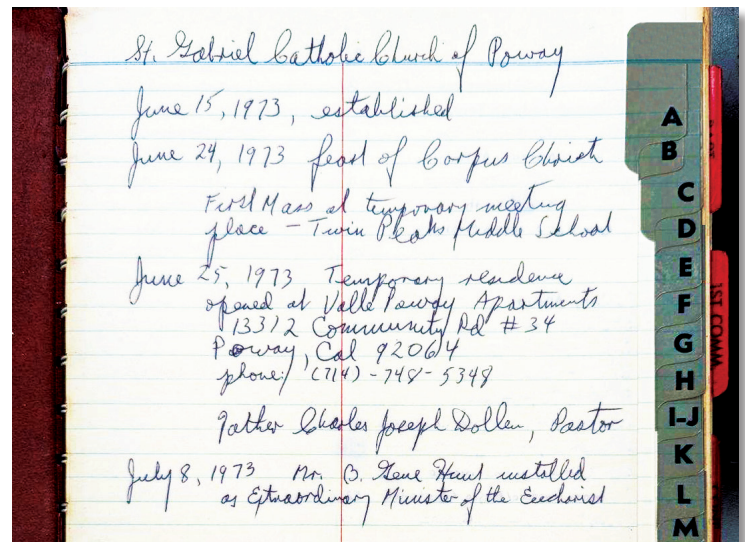 St. Gabriel Catholic Church of Poway
June 15, 1973, established
June 24, 1973 feast of Corpus Christi
First Mass at temporary meeting
place - Twin Peaks Middle School
June 25, 1973 Temporary residence
opened at Valle Poway Apartments
13312 Community Rd #34
Poway, Cal 92064
phone: (714)-748-5348
Father Charles Joseph Dollen, Pastor
July 8, 1973 Mr. B. Gene Hunt installed
as Extraordinary Minister of the Eucharist
A
B
C
D
E
F
G
H
I-J
K
L
M